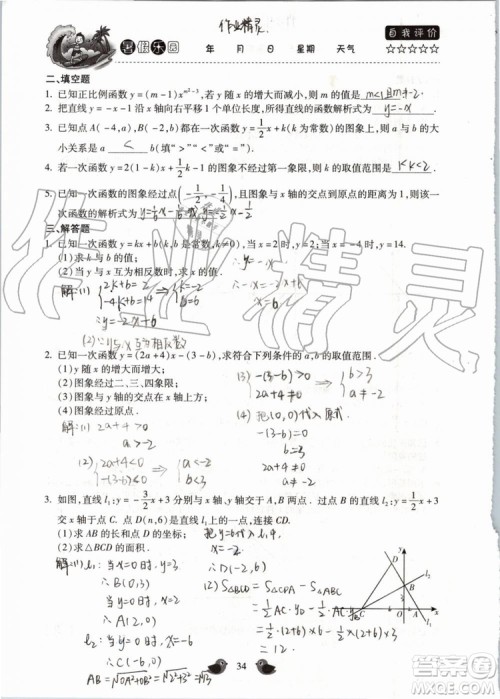 作业精灵
暑假乐园 年 月 日 星期 天气 自我评价
☆☆☆☆☆
二、填空题
1. 已知正比例函数 y=(m-1)x^{m²-3},y 的值随 x 的增大而减小,则 m 的值是 m<1且m≠-2.
2. 把直线 y=-x-1 沿 x 轴向右平移 1 个单位长度,所得直线的函数解析式为 y=-x .
3. 已知点 A(-4,a),B(-2,b)都在一次函数 y=1/2x+k(k 为常数)的图象上,则 a 与 b 的大
小关系是 a < b(填“>”“<”或“=”).
4. 若一次函数 y=2(1-k)x+1/2k-1 的图象不经过第一象限,则 k 的取值范围是 1<k≤2.
5. 已知一次函数的图象经过点(-1/2,-1/4),且图象与 x 轴的交点到原点的距离为 1,则该一
次函数的解析式为
三、解答题
1. 已知一次函数 y=kx+b(k,b 是常数,k≠0),当 x=2 时,y=2;当 x=-4 时,y=14.
(1)求 k 与 b 的值;
(2)当 y 与 x 互为相反数时,求 x 的值.
解:(1) {2k+b=2
-4k+b=14 {k=-2
b=6
∴y=-2x+6
(2)∵y与x互为相反数
∴-x=-2x+6
x=6
2. 已知一次函数 y=(2a+4)x-(3-b),求符合下列条件的 a,b 的取值范围.
(1)y 随 x 的增大而增大;
(2)图象经过二、三、四象限;
(3)图象与 y 轴的交点在 x 轴上方;
(4)图象经过原点.
解:(1) 2a+4>0
a>-2
(2) {2a+4<0
-(3-b)<0 {a<-2
b<3
(3) {-(3-b)>0
2a+4≠0 {b>3
a≠-2
(4) 把(0,0)代入原式
-(3-b)=0
b=3
2a+4≠0
a≠-2
3. 如图,直线 l₁:y=-3/2x+3 分别与 x 轴、y 轴交于 A,B 两点. 过点 B 的直线 l₂:y=1/2x+3
交 x 轴于点 C. 点 D(n,6)是直线 l₁ 上的一点,连接 CD.
(1)求 AB 的长和点 D 的坐标;
(2)求△BCD 的面积.
解:(1) l₁:当x=0时 y=3
∴B(0,3)
当y=0时 x=2
∴A(2,0)
l₂:当y=0时 x=-6
∴C(-6,0)
AB=√OA²+OB²=√2²+3²=√13
把y=6代入l₁
x=-2
∴D(-2,6)
(2) S△BCD=S△CDA-S△ABC
=1/2AC·y_D-1/2AC·y_B
=1/2(2+6)×6-1/2(2+6)×3
=12.
34
作业精灵
答案圈